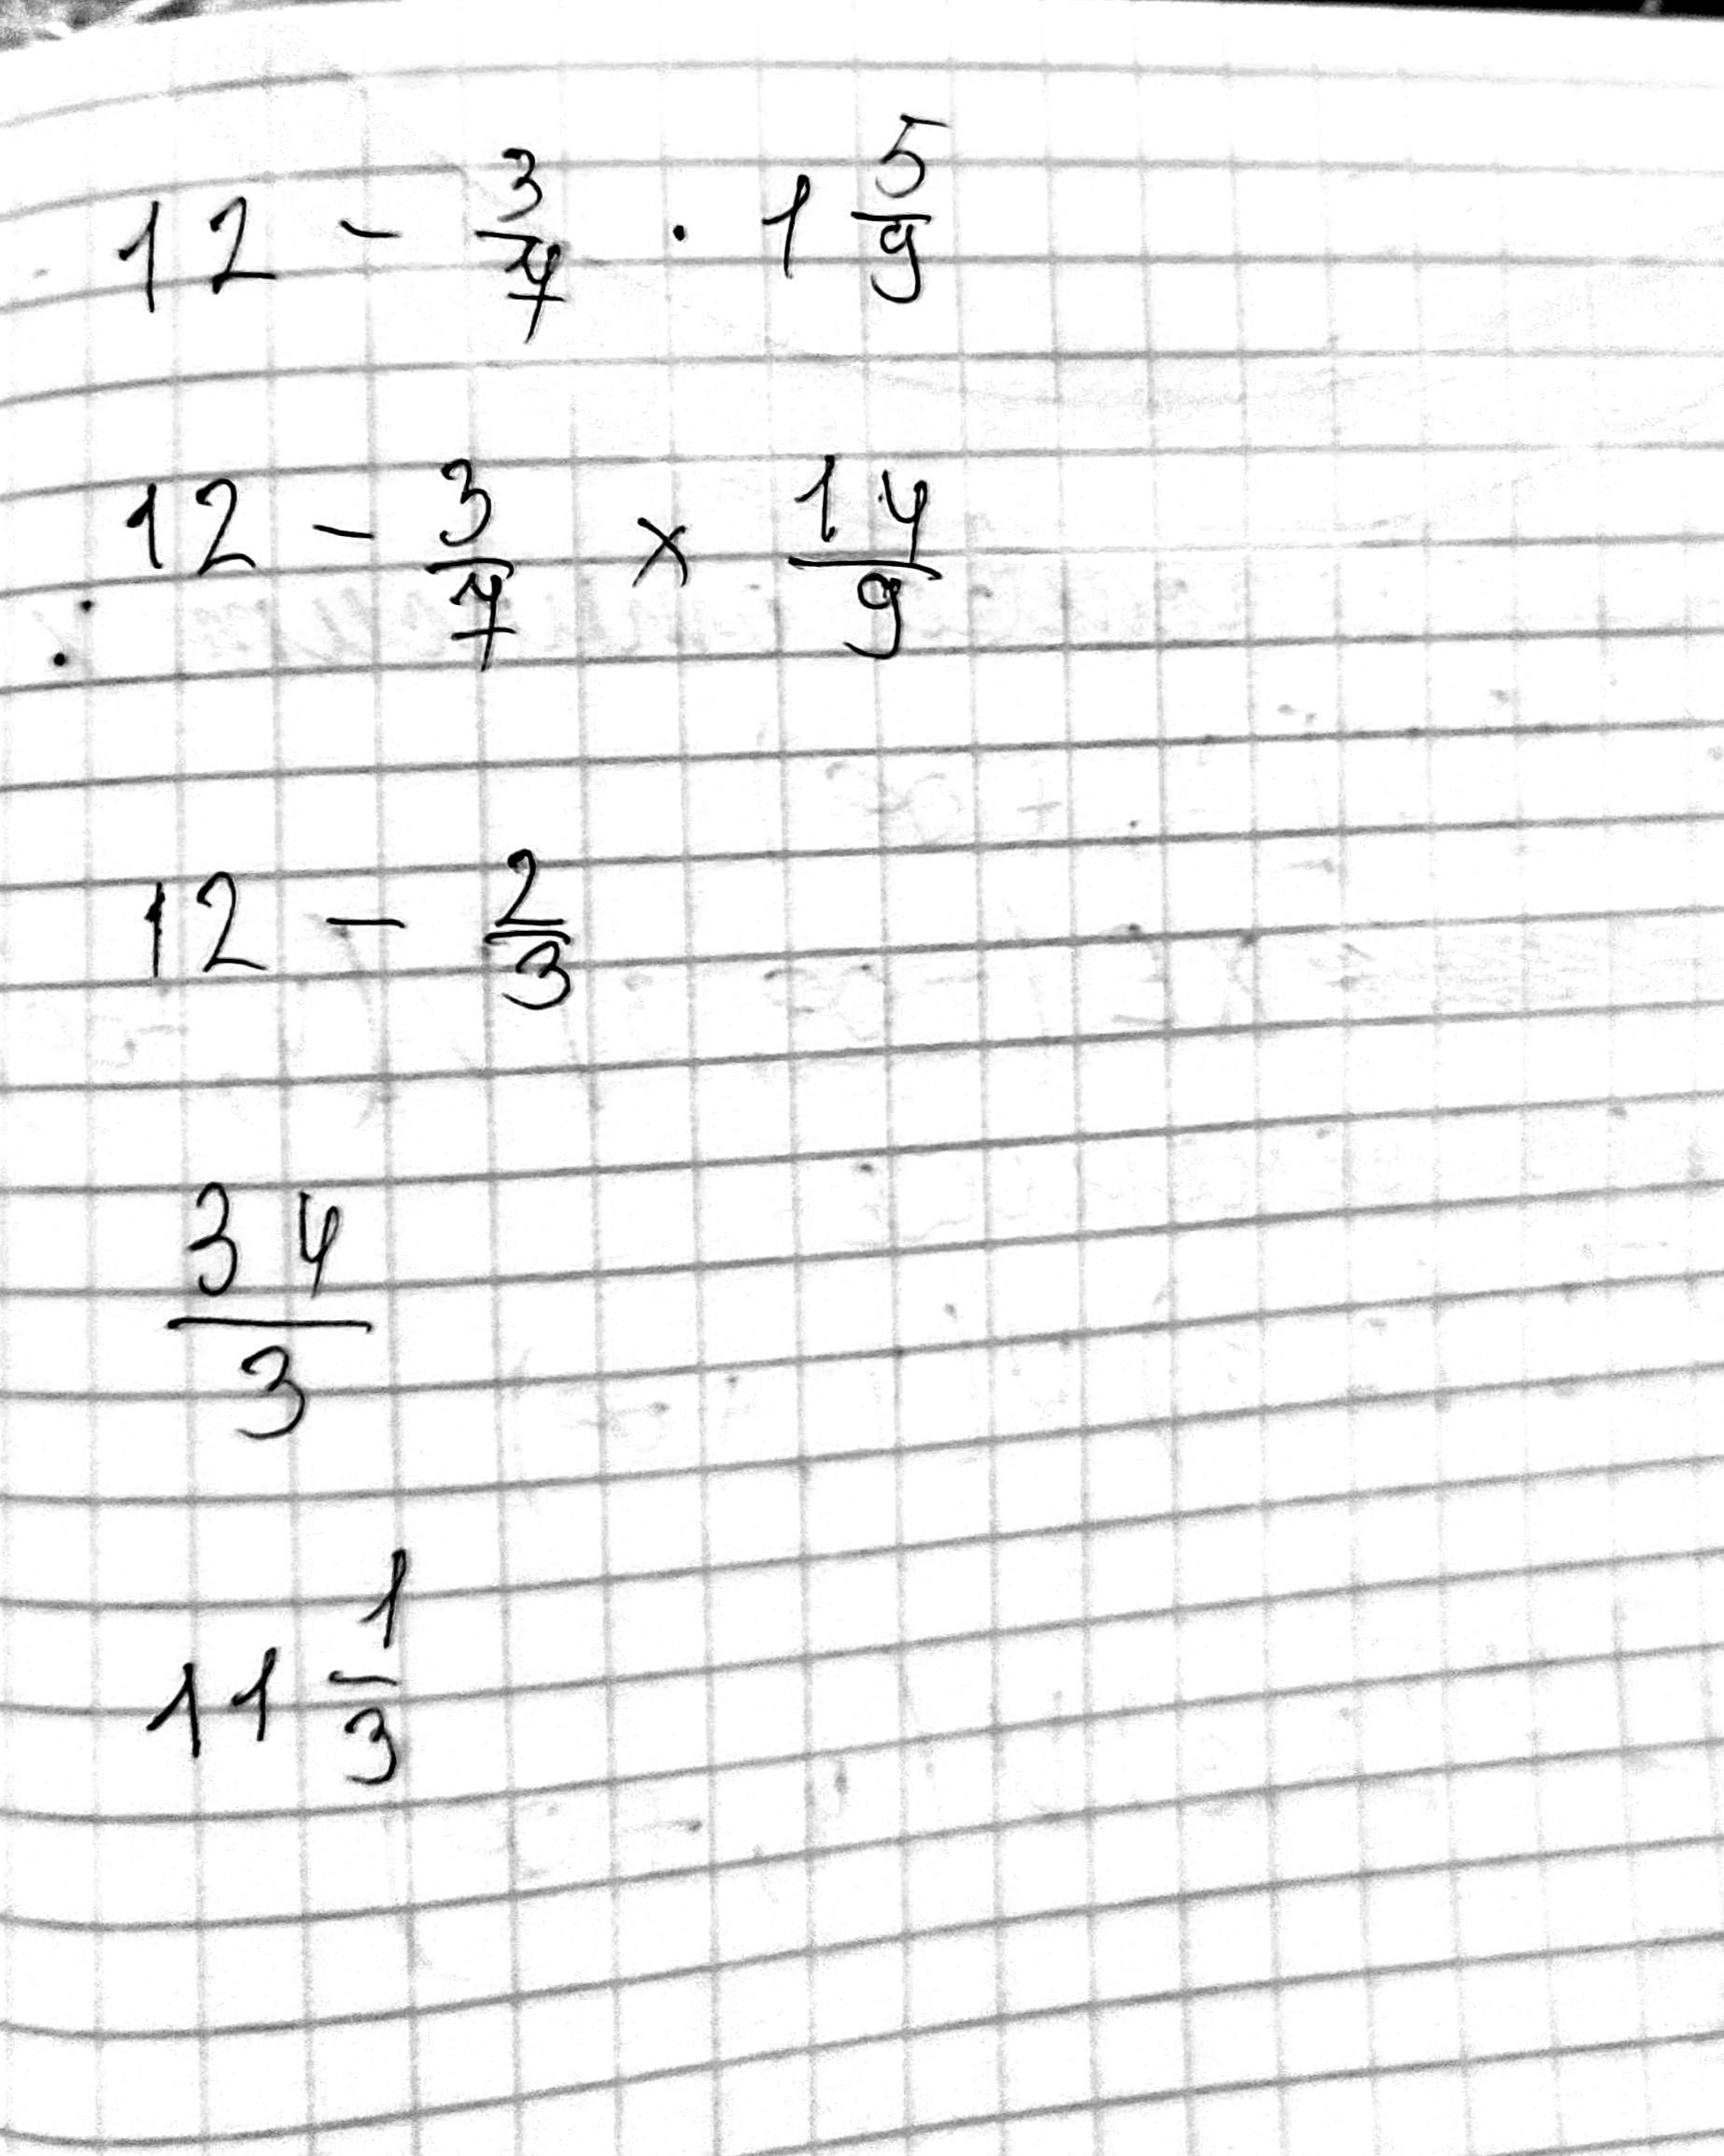 12 - 3/7 · 1 5/9
12 - 3/7 × 14/9
12 - 2/3
34/3
11 1/3